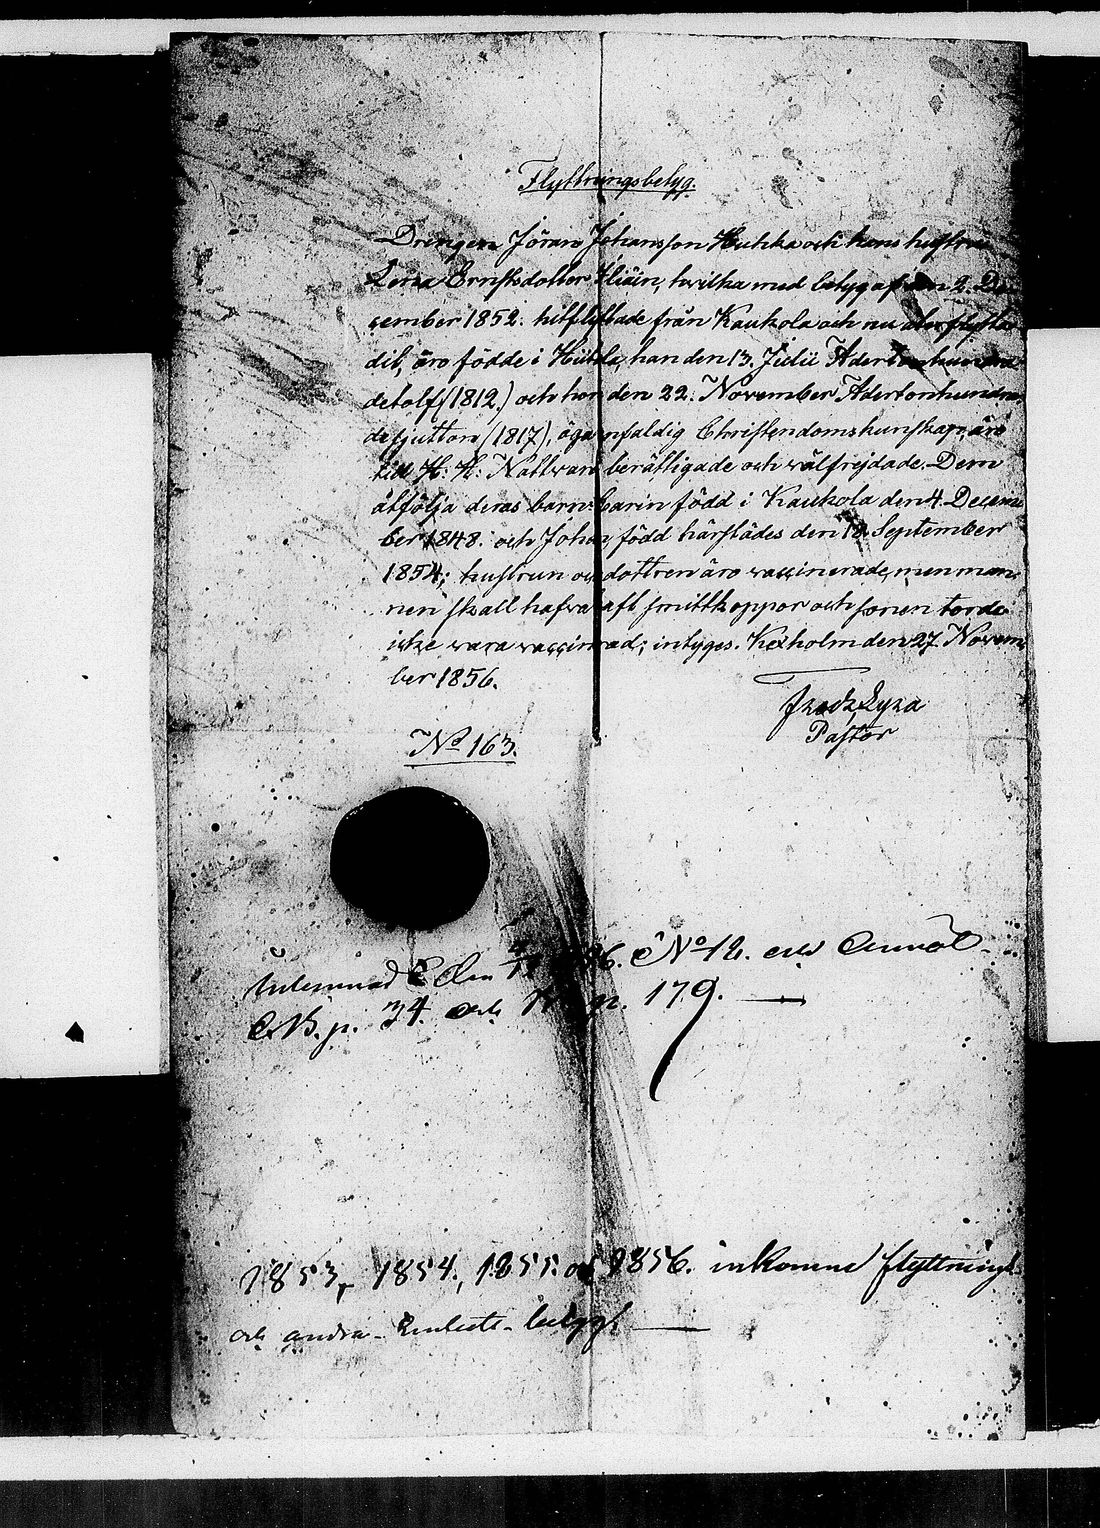 Flyttningsbetyg.
Drengen Jöran Johansson Hukka och hans hustru
Lena Ernstsdotter Hiäin, hvilka med betyg af den 2. De
cember 1852. hitflyttade från Kaukola och nu åter flytta
dit, äro födde i Hiitola, han den 13. Julii Adertonhundra
detolf (1812.) och hon den 22. November Adertonhundra
desjutton (1817), äga enfaldig Christendomskunskap, äro
till H. H. Nattvard berättigade och välfrejdade. Dem
åtfölja deras barn: Carin född i Kaukola den 4. Decem
ber 1848. och Johan, född härstädes den September
1854; hustrun och dottren äro vaccinerade, men man
nen skall hafva haft smittkoppor och sonen torde
icke vara vaccinerad; intyges. Kexholm den 27. Novem
ber 1856.
Fredr. Lyra
Pastor
No 163.
den No 12. och
C.B. p. 34. och p. 179.
1853, 1854, 1855. och 1856. inkomne flyttnings
och andra betyg